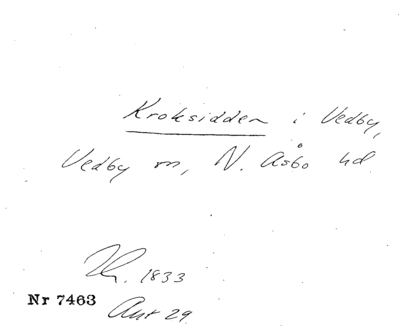 Kroksidden i Vedby,
Vedby sn, N. Åsbo hd
Lh. 1833
Nr 7463
Akt 29